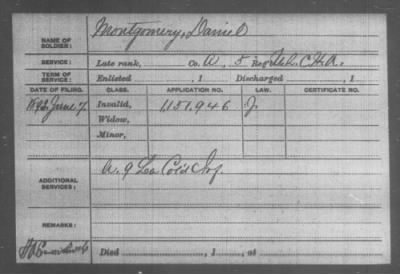 NAME OF SOLDIER: Montgomery, Daniel
SERVICE: Late rank, Co. A, 5 Reg't U.S. C.H.A.
TERM OF SERVICE: Enlisted , 1 Discharged , 1
DATE OF FILING. CLASS. APPLICATION NO. LAW. CERTIFICATE NO.
1892 June 7. Invalid, 1151.946 J.
Widow,
Minor,
ADDITIONAL SERVICES: A. 9 Lea Col'd Inf.
REMARKS:
Died , 1 , at